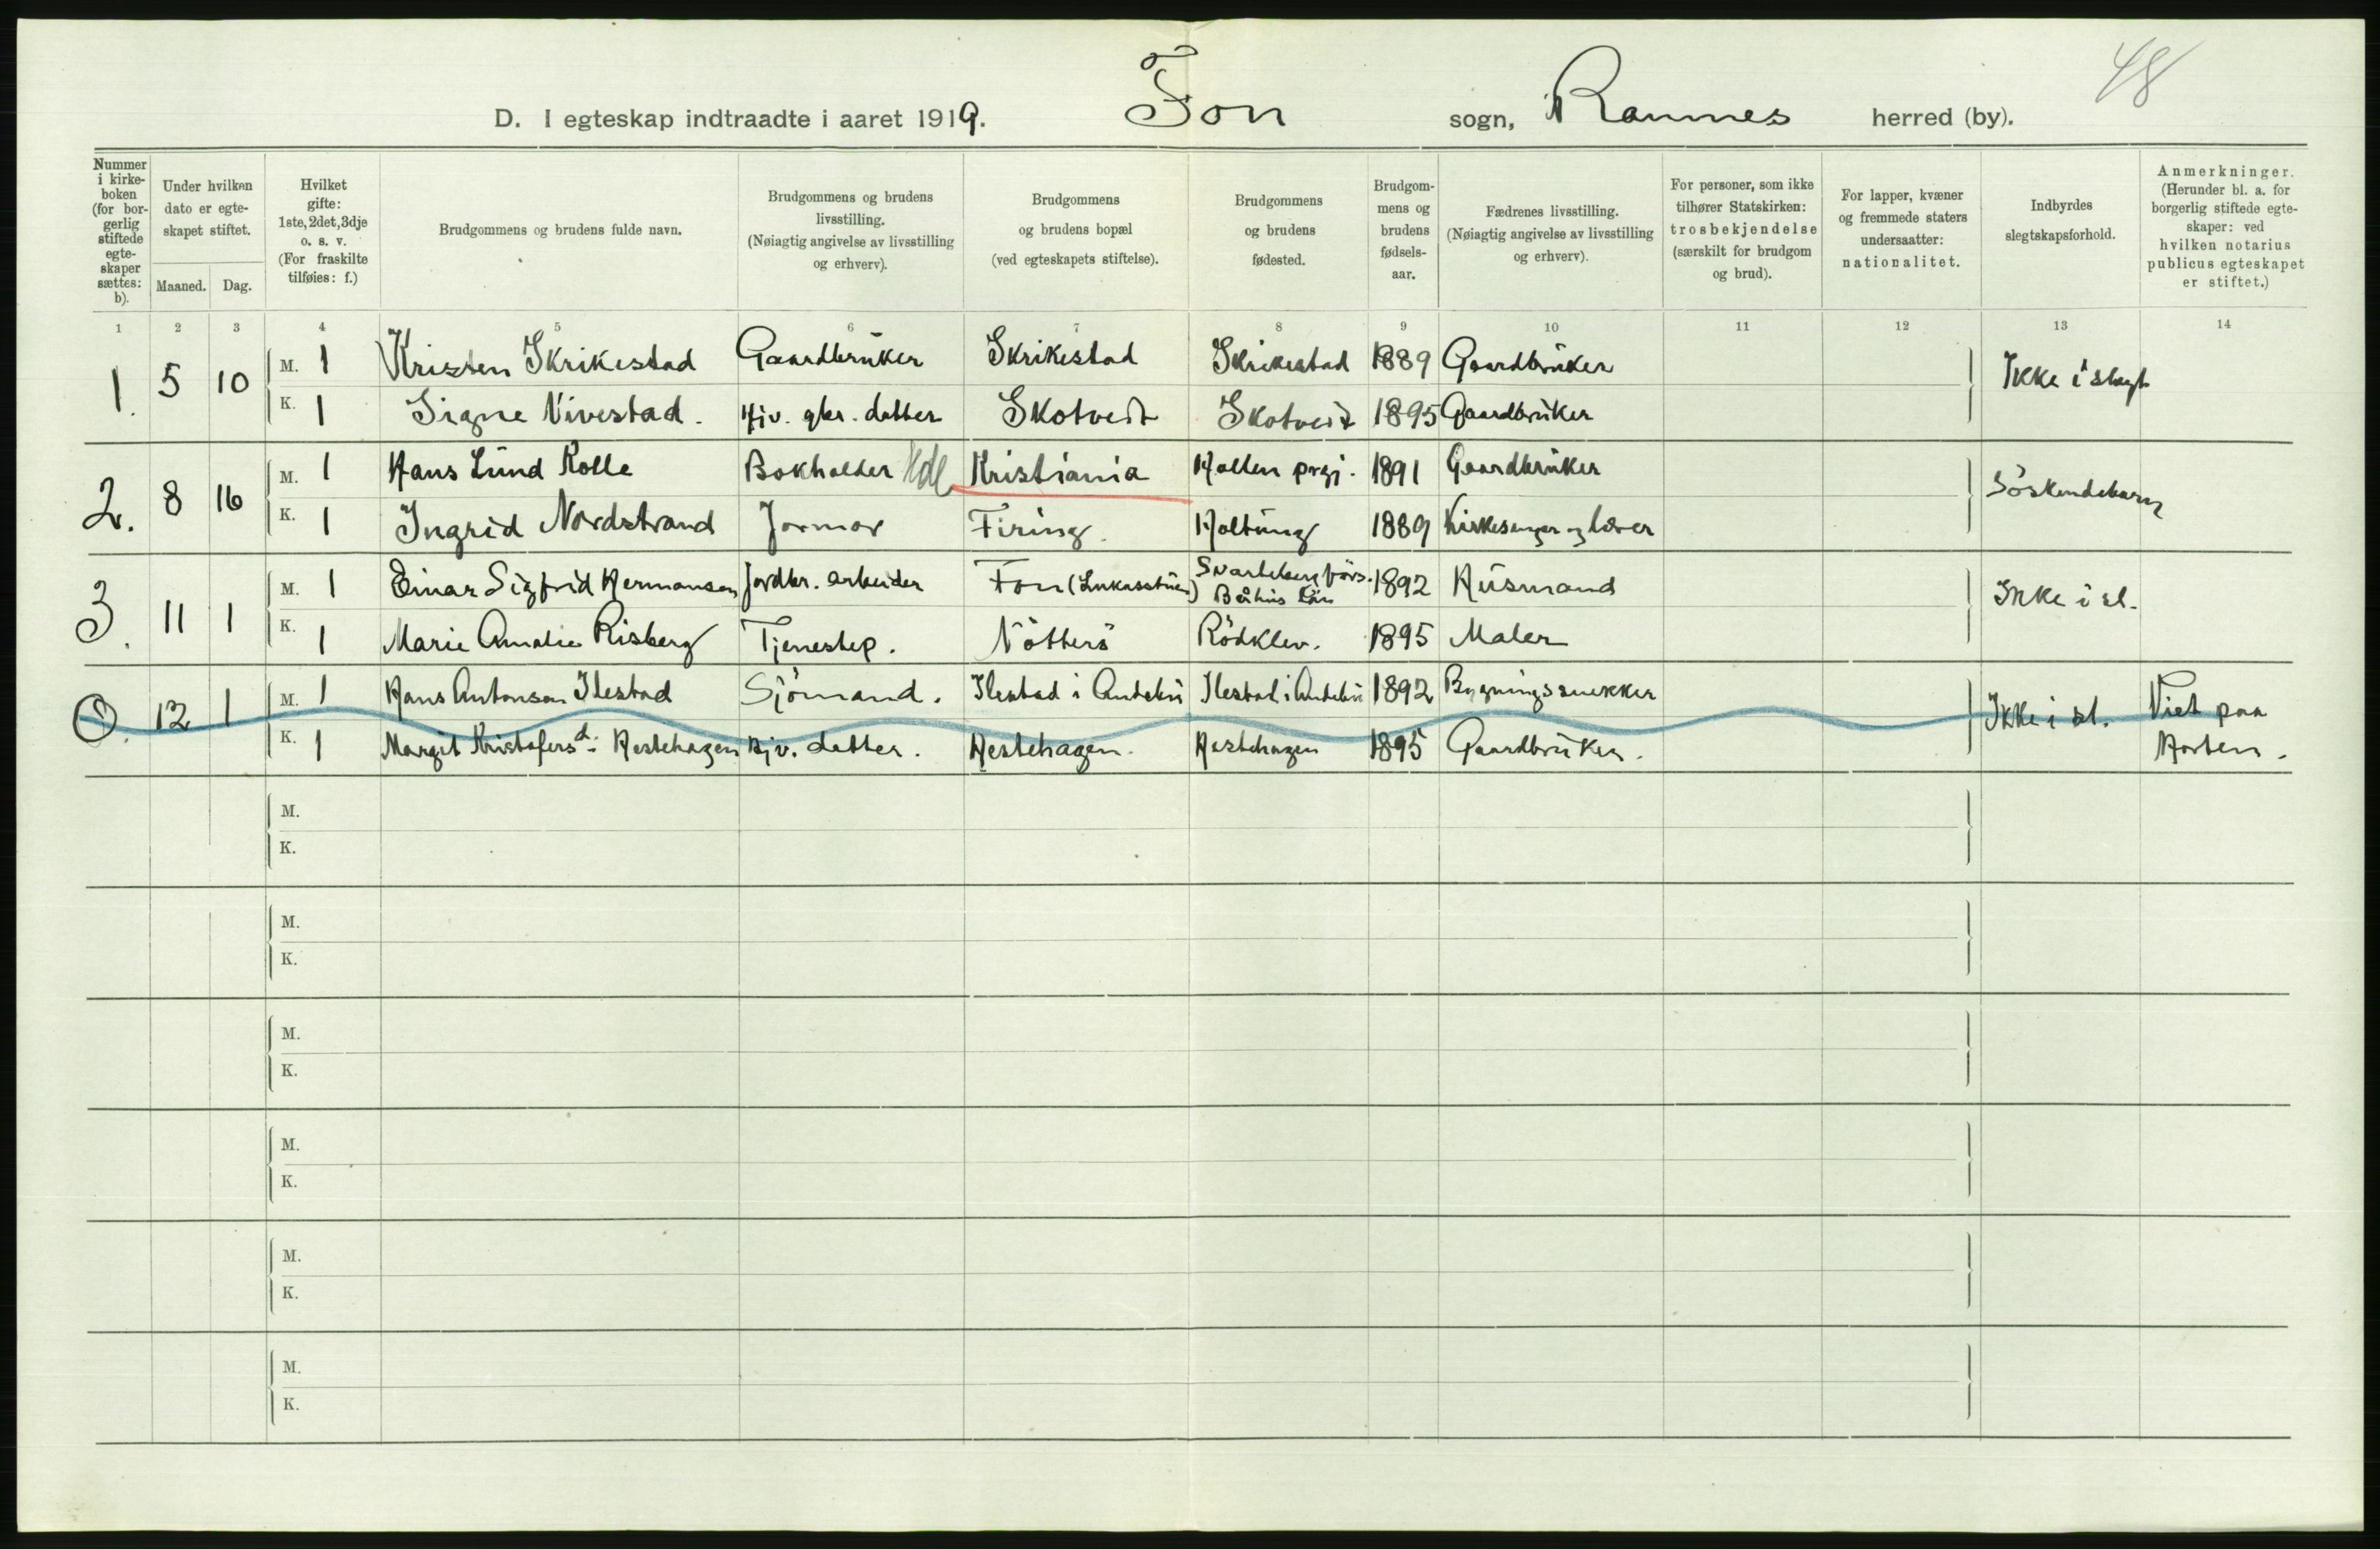 48
D. I egteskap indtraadte i aaret 1919. Fon sogn, Ramnes herred (by).
Nummer i kirke-boken (for bor-gerlig stiftede egte-skaper sættes: b).
Under hvilken dato er egte-skapet stiftet.
Maaned. Dag.
Hvilket gifte: 1ste, 2det, 3dje o. s. v. (For fraskilte tilføies: f.)
Brudgommens og brudens fulde navn.
Brudgommens og brudens livsstilling. (Nøiagtig angivelse av livsstilling og erhverv).
Brudgommens og brudens bopæl (ved egteskapets stiftelse).
Brudgommens og brudens fødested.
Brudgom-mens og brudens fødsels-aar.
Fædrenes livsstilling. (Nøiagtig angivelse av livsstilling og erhverv).
For personer, som ikke tilhører Statskirken: trosbekjendelse (særskilt for brudgom og brud).
For lapper, kvæner og fremmede staters undersaatter: nationalitet.
Indbyrdes slegtskapsforhold.
Anmerkninger. (Herunder bl. a. for borgerlig stiftede egte-skaper: ved hvilken notarius publicus egteskapet er stiftet.)
1 2 3 4 5 6 7 8 9 10 11 12 13 14
1. 5 10 M. 1 Kristen Skrikestad Gaardbrüker Skrikestad Skrikestad 1889 Gaardbrüker Ikke i slegt
K. 1 Signe Vivestad. Hjv. gbr. datter Skotvedt Skotvedt 1895 Gaardbrüker
2. 8 16 M. 1 Hans Lünd Kolle Bokholder Kristiania Holden prgj. 1891 Gaardbrüker Söskendebarn
K. 1 Ingrid Nordstrand Jormor Firing. Holtüng 1889 Kirkesanger og lærer
3. 11 1 M. 1 Einar Sigfrid Hermansen Jordbr. arbeider Fon (Lukasstüen) Svarteberg förs. Båhüs Län 1892 Hüsmand Ikke i sl.
K. 1 Marie Amalie Risberg Tjenestep. Nötterö Rödklev. 1895 Maler
12 1 M. 1 Hans Antonsen Ilestad Sjömand. Ilestad i Andebü Ilestad i Andebü 1892 Bygningssnekker Ikke i sl. Viet paa Horten.
K. 1 Margit Kristofersd. Hestehagen Hjv. datter. Hestehagen. Hestehagen 1895 Gaardbrüker.
M.
K.
M.
K.
M.
K.
M.
K.
M.
K.
M.
K.